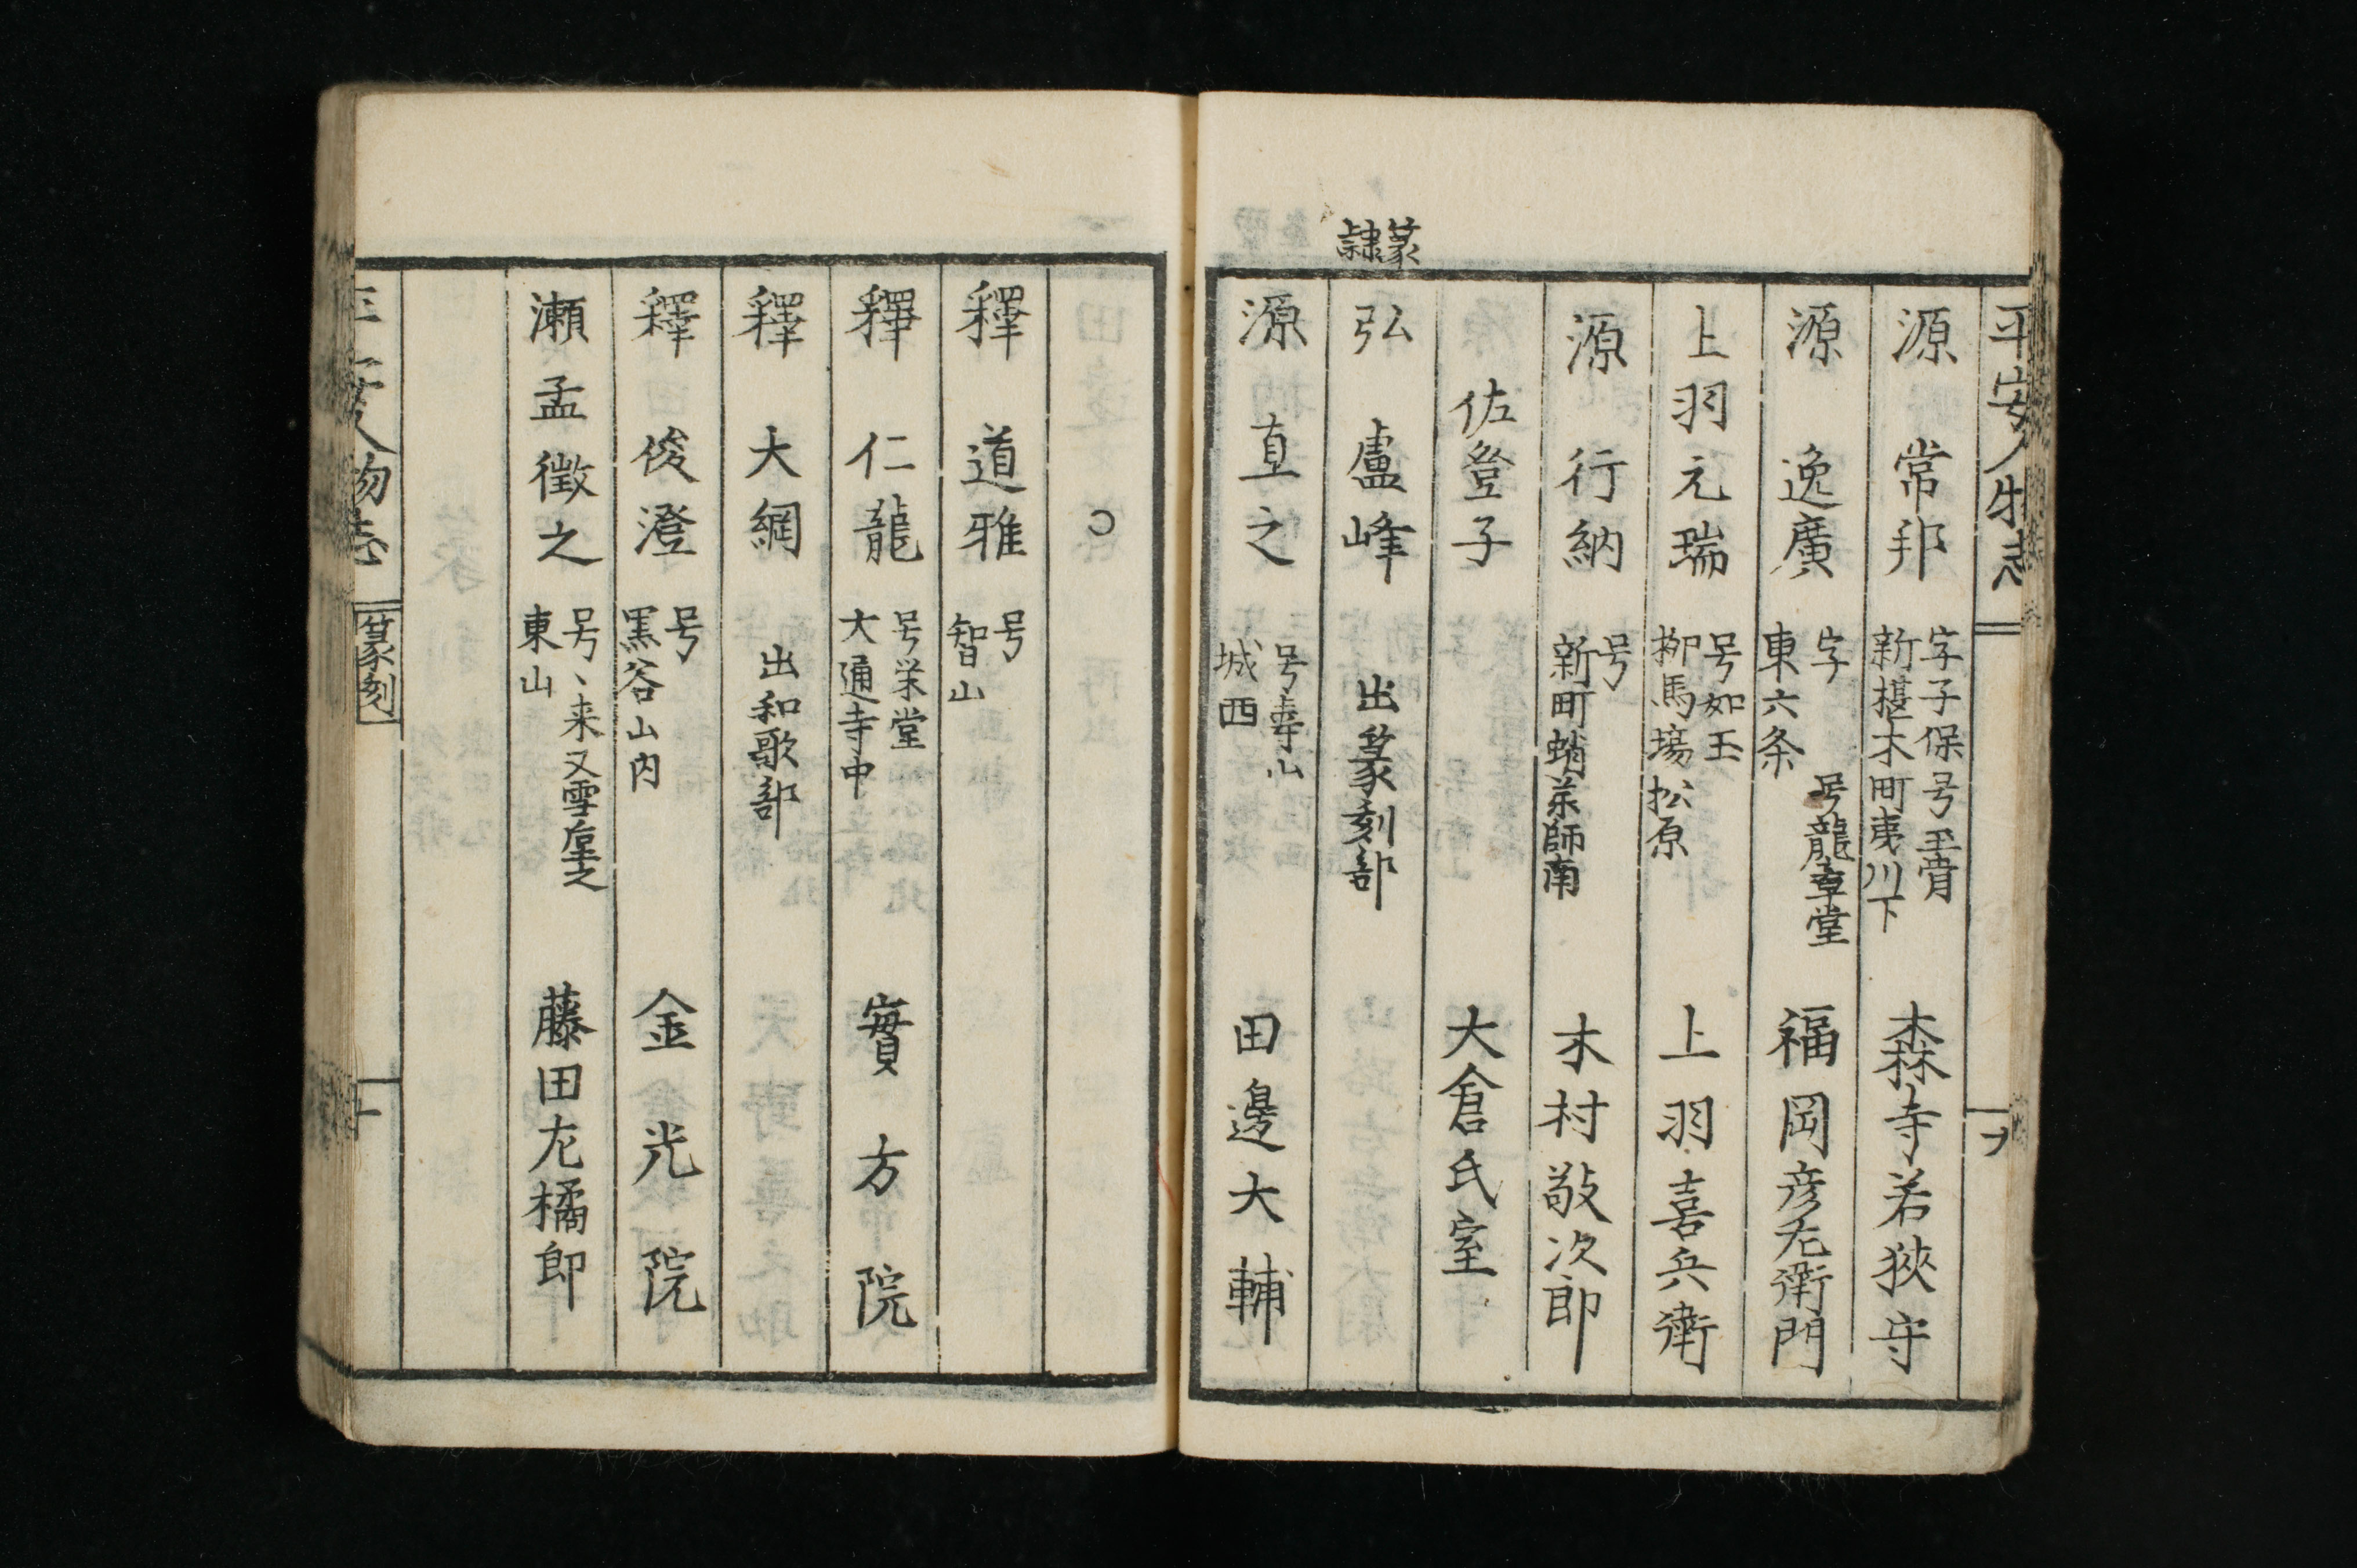 平安人物志
源 常邦 字子保号玉膏 新椹木町夷川下 森寺若狭守
源 逸廣 字 号龍章堂 東六条 福岡彦右衛門
上羽元瑞 号如玉 柳馬場松原 上羽喜兵衛
源 行納 号 新町蛸薬師南 木村敬次郎
佐登子 大倉氏室
篆隷
弘 盧峰 出篆刻部
源 直之 号壽山 城西 田邊大輔
釋 道雅 号 智山
釋 仁龍 号栄堂 大通寺中 實方院
釋 大綱 出和歌部
釋 俊澄 号 黒谷山内 金光院
瀬孟徴之 東山 藤田左橘郎
平安人物志
篆刻